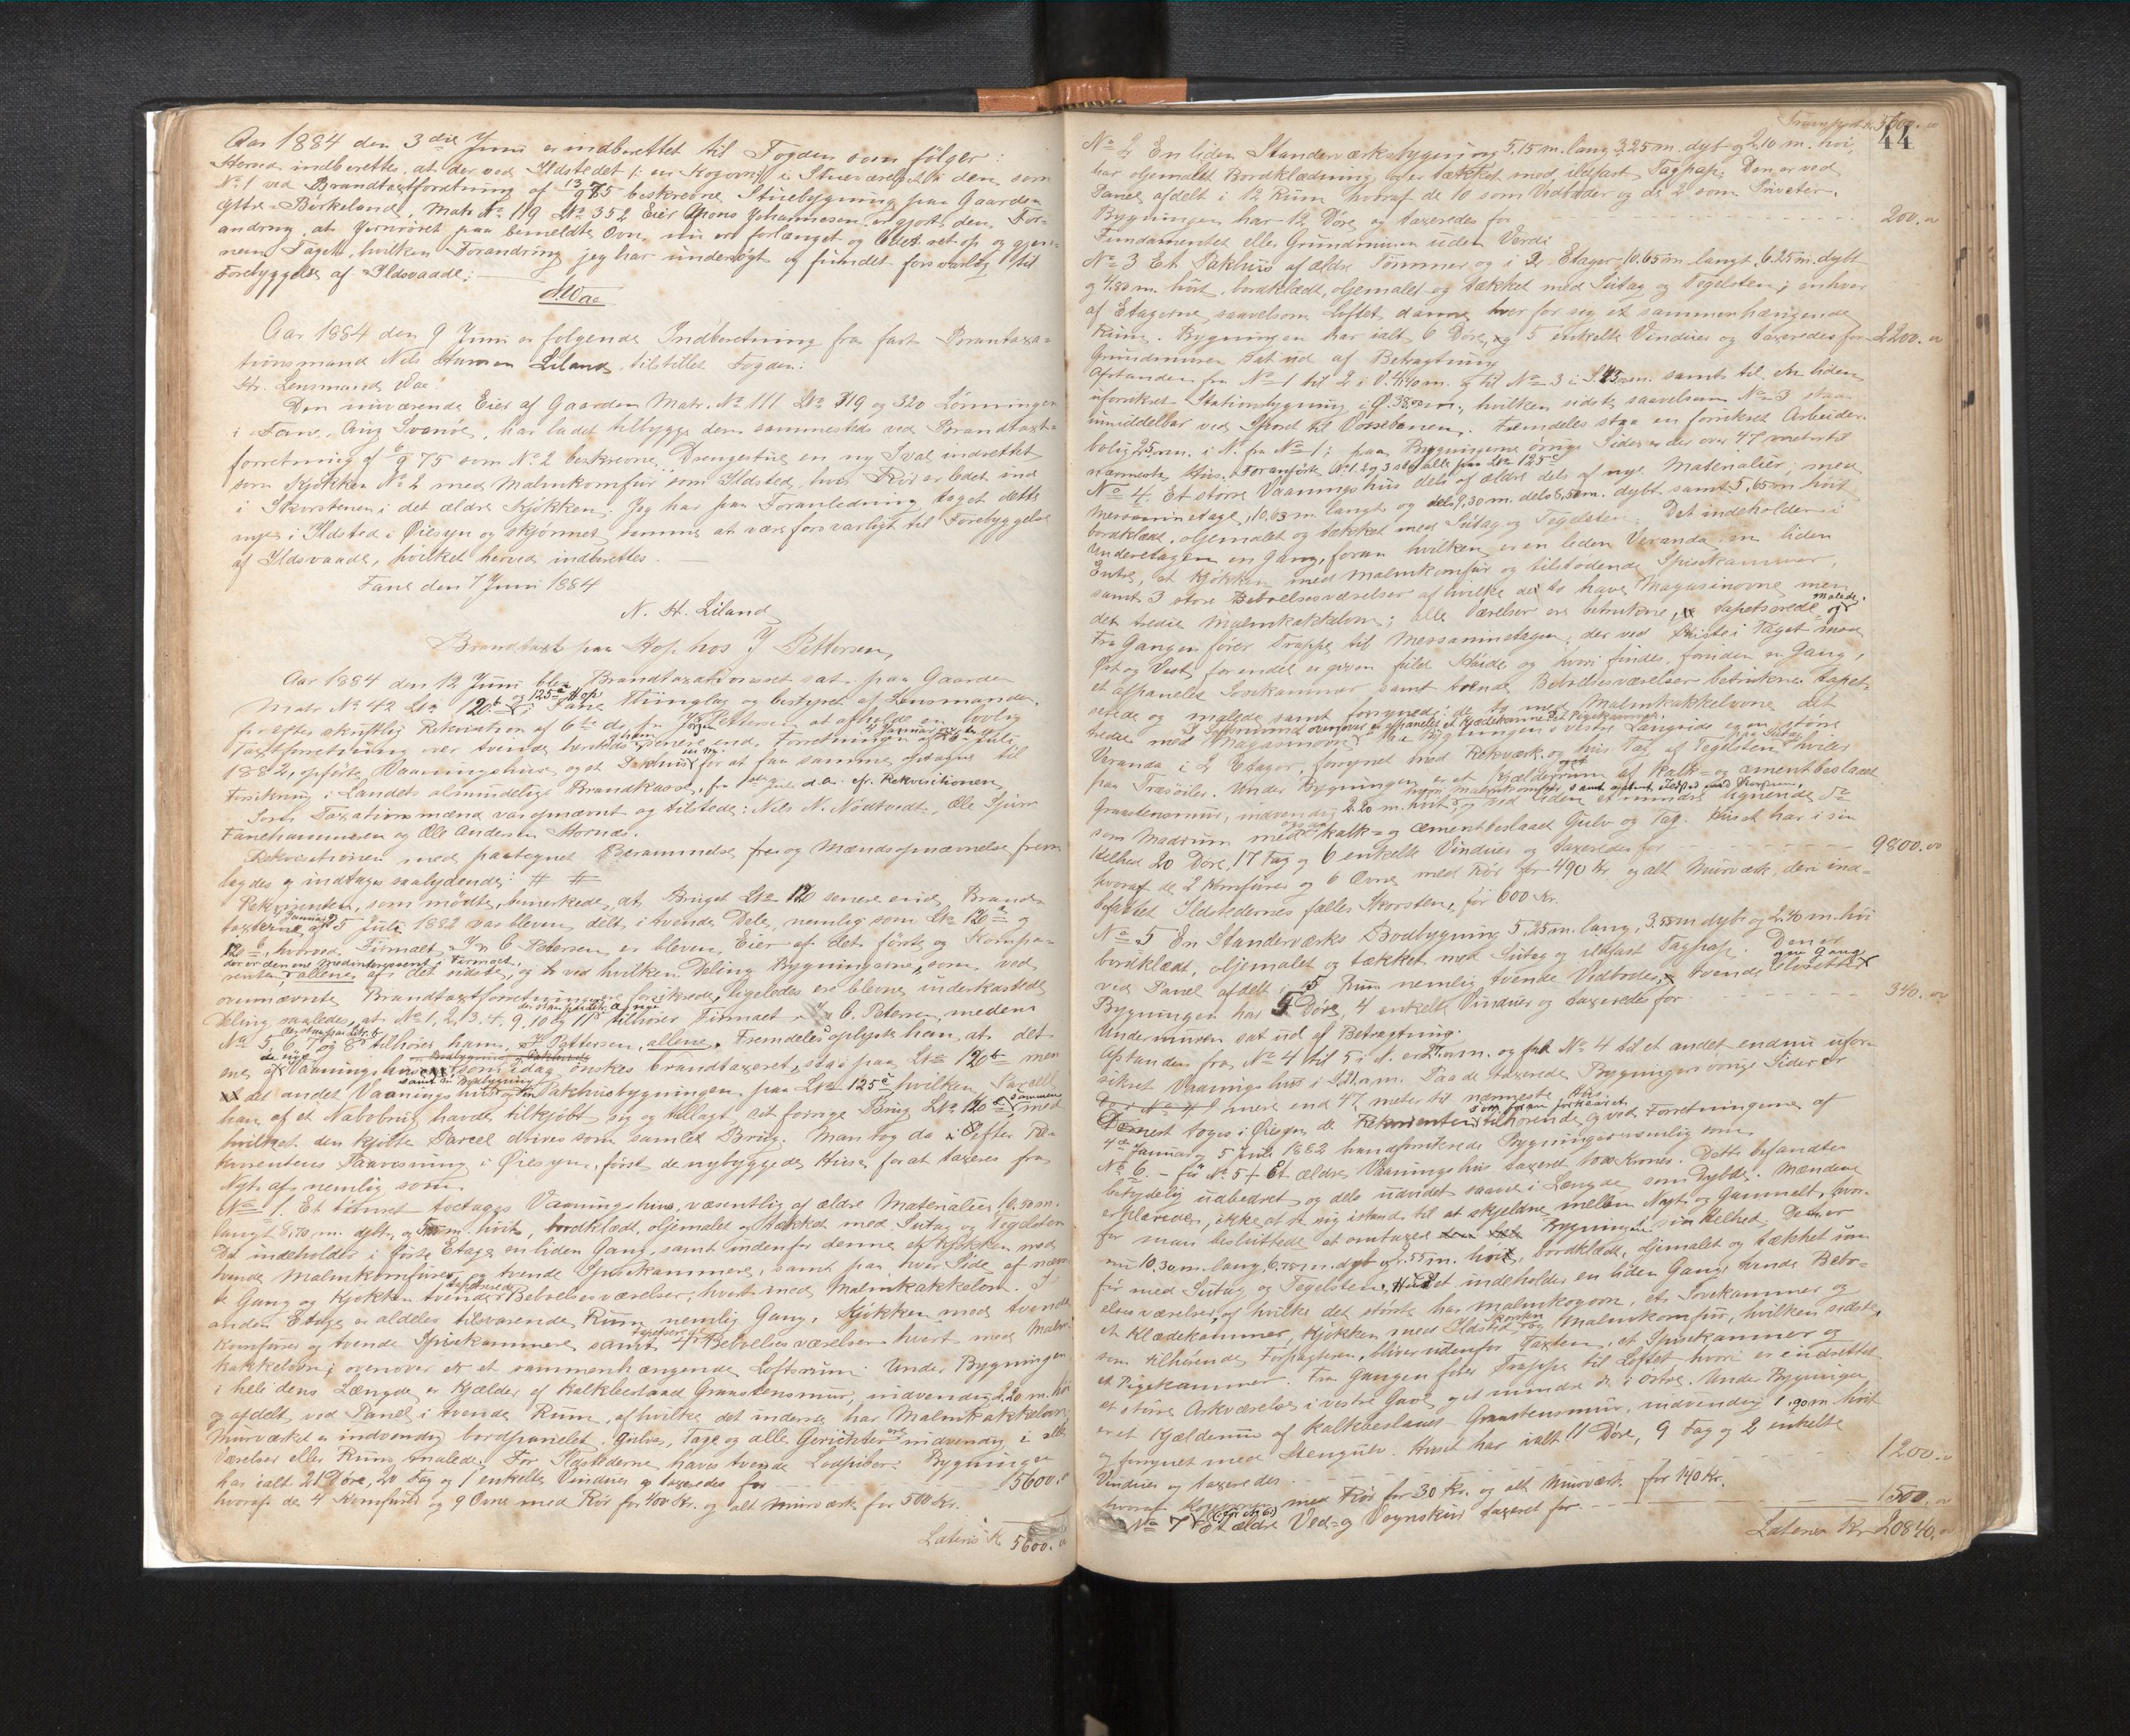 Aar 1884 den 3die Juni er indberettet til Fogden som følger:
Herved indberettes, at der ved Ildstedet i: en Kogeovn i Stueværelset i den, som
No 1 ved Brandtaxtforretning af 13/9 75 beskrevne Stuebygning paa Gaarden
Ytre-Birkeland, Matr. No 119 Lno 352 Eier Mons Johannesen er gjort den For-
andring, at Jernrøret paa bemeldte Ovn nu er forlænget og ledet ret op og gjen-
nem Taget, hvilken Forandring jeg har undersøgt og fundet forsvarlig til
Forebyggelse af Ildsvaade.
Aar 1884 den 9 Juni er følgende Indberetning fra fast Brantaxa-
tionsmand Nils Hansen Liland, tilstillet Fogden:
Hr. Lensmand Wae!
Den nuværende Eier af Gaarden Matr. No 111 Lno 319 og 320 Lønningen
i Fane, Aug Svanøe, har ladet tilbygge den sammesteds ved Brandtaxt-
forretning af 6/9 75 som No 2 beskrevne Drengestue en ny Sval indrettet
som Kjøkken No 2 med Malmkomfur som Ildsted, hvis Rør er ledet ind
i Skorstenen i det ældre Kjøkken. Jeg har paa Foranledning taget dette
nye Ildsted i Øiesyn og skjønnet samme at være forsvarligt til Forebyggelse
af Ildsvaade, hvilket herved indberettes.
Fane den 7 Juni 1884
N. H. Liland
Brandtaxt paa Hop hos J Pettersen,
Aar 1884 den 12 Juni blev Brandtaxationsret sat paa Gaarden
Matr No 42 Lno 120b og 125c Hop i Fane Thinglag og bestyret af Lensmanden,
for efter skriftlig Rekvisition af 6te ds. fra Jørgen Pettersen at afholde en lovlig
Taxtforretning over tvende herteds senere end Forretningen af 4 Januar og 5 Juli
1882, opførte Vaaningshuse og et Pakhus for at faa samme optagne til
Forsikring i Landets almindelige Brandkasse, fra Juli d.a. cfr. Rekvisitionen.
Som Taxationsmænd var opnævnt og tilstede: Nils N. Nødtvedt, Ole Sjursen
Fanehammeren og Ole Andersen Stornæs.
Rekvisitionen med paategnet Berammelse og Mændsopnævnelse frem
lagdes og indtages saalydende: # #
Rekvirenten, som mødte, bemerkede, at Bruget Lno 120 senere end Brand-
taxterne af Januar og 5 Juli 1882 var bleven delt i tvende Dele, nemlig som Lno 120a og
120b, hvorved Firmaet Jn C Petersen er bleven Eier af det første og Kompa-
der er den ene Medinteressent i Firmaet,
renten allene af det sidste, og ved hvilken Deling Bygningerne, som ved
ovennævnte Brandtaxtforretninger ere forsikrede, ligeledes ere blevne underkastede
Deling saaledes, at No 1, 2, 3, 4, 9, 10 og 11 tilhører Firmaet Jn C. Petersen, medens
No 5, 6, 7 og 8 tilhører ham, J Pettersen, allene. Fremdeles oplyste han, at det
ene af Vaaningshusene, som idag ønskes brandtaxeret, staa paa Lno 120b men
det andet Vaaningshus og Pakhusbygningen paa Lno 125c hvilken Parcel
han af et Nabobrug havde tilkjøbt sig og tillagt sit forrige Brug Lno 120b sammen med
hvilket den kjøbte Parcel drives som samlet Brug. Man tog da efter Re-
kvirentens Paavisning i Øiesyn, først de nybyggede Huse for at taxeres fra
Nyt af nemlig som:
No 1. Et tømret toetages Vaaningshus, væsentlig af ældre Materialier 10.50 m.
langt 8.70 m. dybt, og m. høit, bordklædt, oljemalet og tækket med Sutag og Tegelsten
Det indeholder i første Etage en liden Gang, samt indenfor denne et Kjøkken med
tvende Malmkomfurer og tvende Spisekammere, samt paa hver Side af nævn-
te Gang og Kjøkken tvende tapetserede Beboelsesværelser, hvert med Malmkakkelovn. I
anden Etage er aldeles tilsvarende Rum nemlig Gang, Kjøkken med tvende
Komfurer og tvende Spisekammere samt 4 tapetserede Beboelsesværelser hvert med Malm-
kakkelovn; ovenover er et sammenhængende Loftsrum. Under Bygningen
i hele dens Længde er Kjælder af kalkbeslaaed Graastensmur, indvendig 2.20 m. høi
og afdelt ved Panel i tvende Rum, af hvilke det inderste har Malmkakkelovn.
Murværket er indvendig bordpanelet. Gulve, Tage og alle Gerichter ere indvendig i alle
Værelser eller Rum malede. For Ildstederne haves tvende Lodpiber. Bygningen
har ialt 21 Døre, 20 Fag og 1 enkelte Vinduer og taxeredes for 15600.
hvoraf de 4 Komfurer og 9 Ovne med Rør for 400 Kr. og alt Murværk for 500 Kr.
Lateris Kr 5600.
Transport Kr 5600.
44
No 2 En liden Standerværksbygning 5.15 m. lang 3.25 m. dyb og 2.10 m. høi,
har oljemalet Bordklædning, er tækket med ildfast Tagpap. Den er ved
Panel afdelt i 12 Rum hvoraf de 10 som Vedboder og de 2 som Priveter.
Bygningen har 12 Døre og taxeredes for 200.
Fundamentet eller Grundmuren uden Verdi
No 3 Et Pakhus af ældre Tømmer og i 2 Etager 10.65 m langt, 6.25 m. dybt
og 7.80 m. høit, bordklædt, oljemalet og tækket med Sutag og Tegelsten; enhver
af Etagerne saavelsom Loftet danne hver for sig et sammenhængende
Rum. Bygningen har ialt 6 Døre og 5 enkelte Vinduer og taxeredes for 2200.
Grundmuren sat ud af Betragtning
Afstanden fra No 1 til 2 i V. 4.40 m. og til No 3 i S. m. samt til en liden
uforsikret Stationsbygning i Ø. 38.00 m., hvilken sidste saavelsom No 3 staa
umiddelbar ved Sporet til Vossebanen. Fremdeles staa en forsikret Arbeider-
bolig 25 m. i N. fra No 1; fra Bygningerne øvrige Sider er der over 47 meter til
nærmeste Hus. Foranførte No 1, 2 og 3 staa alle paa Lno 125c
No 4. Et større Vaaningshus dels af ældre dels af nye Materialier, med
Messaninetage, 10.63 m. langt og dels 9.30 m. dels 8.50 m. dybt samt 5.65 m høit
bordklædt, oljemalet og tækket med Sutag og Tegelsten. Det indeholder i
Underetagen en Gang, foran hvilken er en leden Veranda, en liden
Entre, et Kjøkken med Malmkomfur og tilstødende Spisekammer,
samt 3 store Beboelsesværelser af hvilke de to have Magasinovne men
det tredie Malmkakkelovn; alle Værelser ere betrukne, tapetserede og malede.
Fra Gangen fører Trappe til Messaninetagen, der ved Kviste i Taget mod
Øst og Vest for endel er given fuld Høide og hvori findes, foruden en Gang,
et afpanelet Sovekammer samt trende Beboelsesværelser betrukne tapet-
serede og malede samt forsynede: de to med Malmkakkelovne det
tredie med Magasinovn. Ved Bygningens vestre Langside er en større
Veranda i 2 Etager, forsynet med Rekværk, og hvis Tag af Tegelsten hviler
paa Træsøiler. Under Bygningen er et Kjælderrum af kalk- og cementbeslaaet
Graastensmur, indvendig 2.20 m. høit og ved Siden et mindre lignende do
som Madrum med kalk- og cementbeslaaed Gulv og Tag. Huset har i sin
Helhed 20 Døre, 17 Fag og 6 enkelte Vinduer og taxeredes for 9800.
hvoraf de 2 Komfurer og 6 Ovne med Rør for 490 Kr. og alt Murværk, deri ind-
befattet Ildstedernes fælles Skorsten, for 600 Kr.
No 5 En Standerværks Bodbygning 5.25 m. lang, 3.55 m dyb og 2.40 m. høi
bordklædt, oljemalet og tækket med Sutag og ildfast Tagpap. Den er
ved Panel afdelt i 5 Rum nemlig tvende Vedboder, tvende Klosetter og en Gang
Bygningen har 5 Døre, 4 enkelte Vinduer og taxeredes for 340.
Undermuren sat ud af Betragtning.
Afstanden fra No 4 til 5 i N. er m. og fra No 4 til et andet endnu ufor-
sikret Vaaningshus i S. 21. m. Paa de taxerede Bygningers øvrige Sider er
mere end 47 meter til nærmeste Hus.
Dernest toges i Øiesyn de Rekvirenten som foran forklaret tilhørende og ved Forretningerne af
4de Januar og 5 Juli 1882 forsikrede Bygninger nemlig som
No 6 – før No 5 – Et ældre Vaaningshus taxeret 1000 Kroner. Dette befandtes
betydelig udbedret og dels udvidet saavel i Længde som Dybde. Mændene
erklærede, ikke at se sig istand til at skjelne mellem Nyt og Gammelt, hvor-
for man besluttede at omtaxere Bygningen i sin Helhed. Den er
nu 10.30 m. lang, 6.75 m. dyb og 2.55 m. høi, bordklædt, oljemalet og tækket som
før med Sutag og Tegelsten. Huset indeholder en liden Gang, tvende Bebo-
elsesværelser, af hvilke det største har Malmkogeovn, et Sovekammer og
et Klædekammer, Kjøkken med Ildsted og Malmkomfur, hvilken sidste,
som tilhørende Forpagteren, bliver udenfor Taxten, et Spisekammer og
et Pigekammer. Fra Gangen fører Trappe til Loftet hvori er indrettet
et større Arkværelse i vestre Gavl og et mindre do i østre. Under Bygningen
er et Kjælderrum af kalkbeslaaet Graastensmur, indvendig 1.90 m. høit
og forsynet med Stengulv. Huset har ialt 11 Døre, 9 Fag og 2 enkelte
Vinduer og taxeredes 1200.
hvoraf Kogeovnen med Rør for 30 Kr. og alt Murværk for 140 Kr.
No 7 (før No 6) Et ældre Ved- og Vognskur taxeret for 1500.
Lateris Kr 20840.